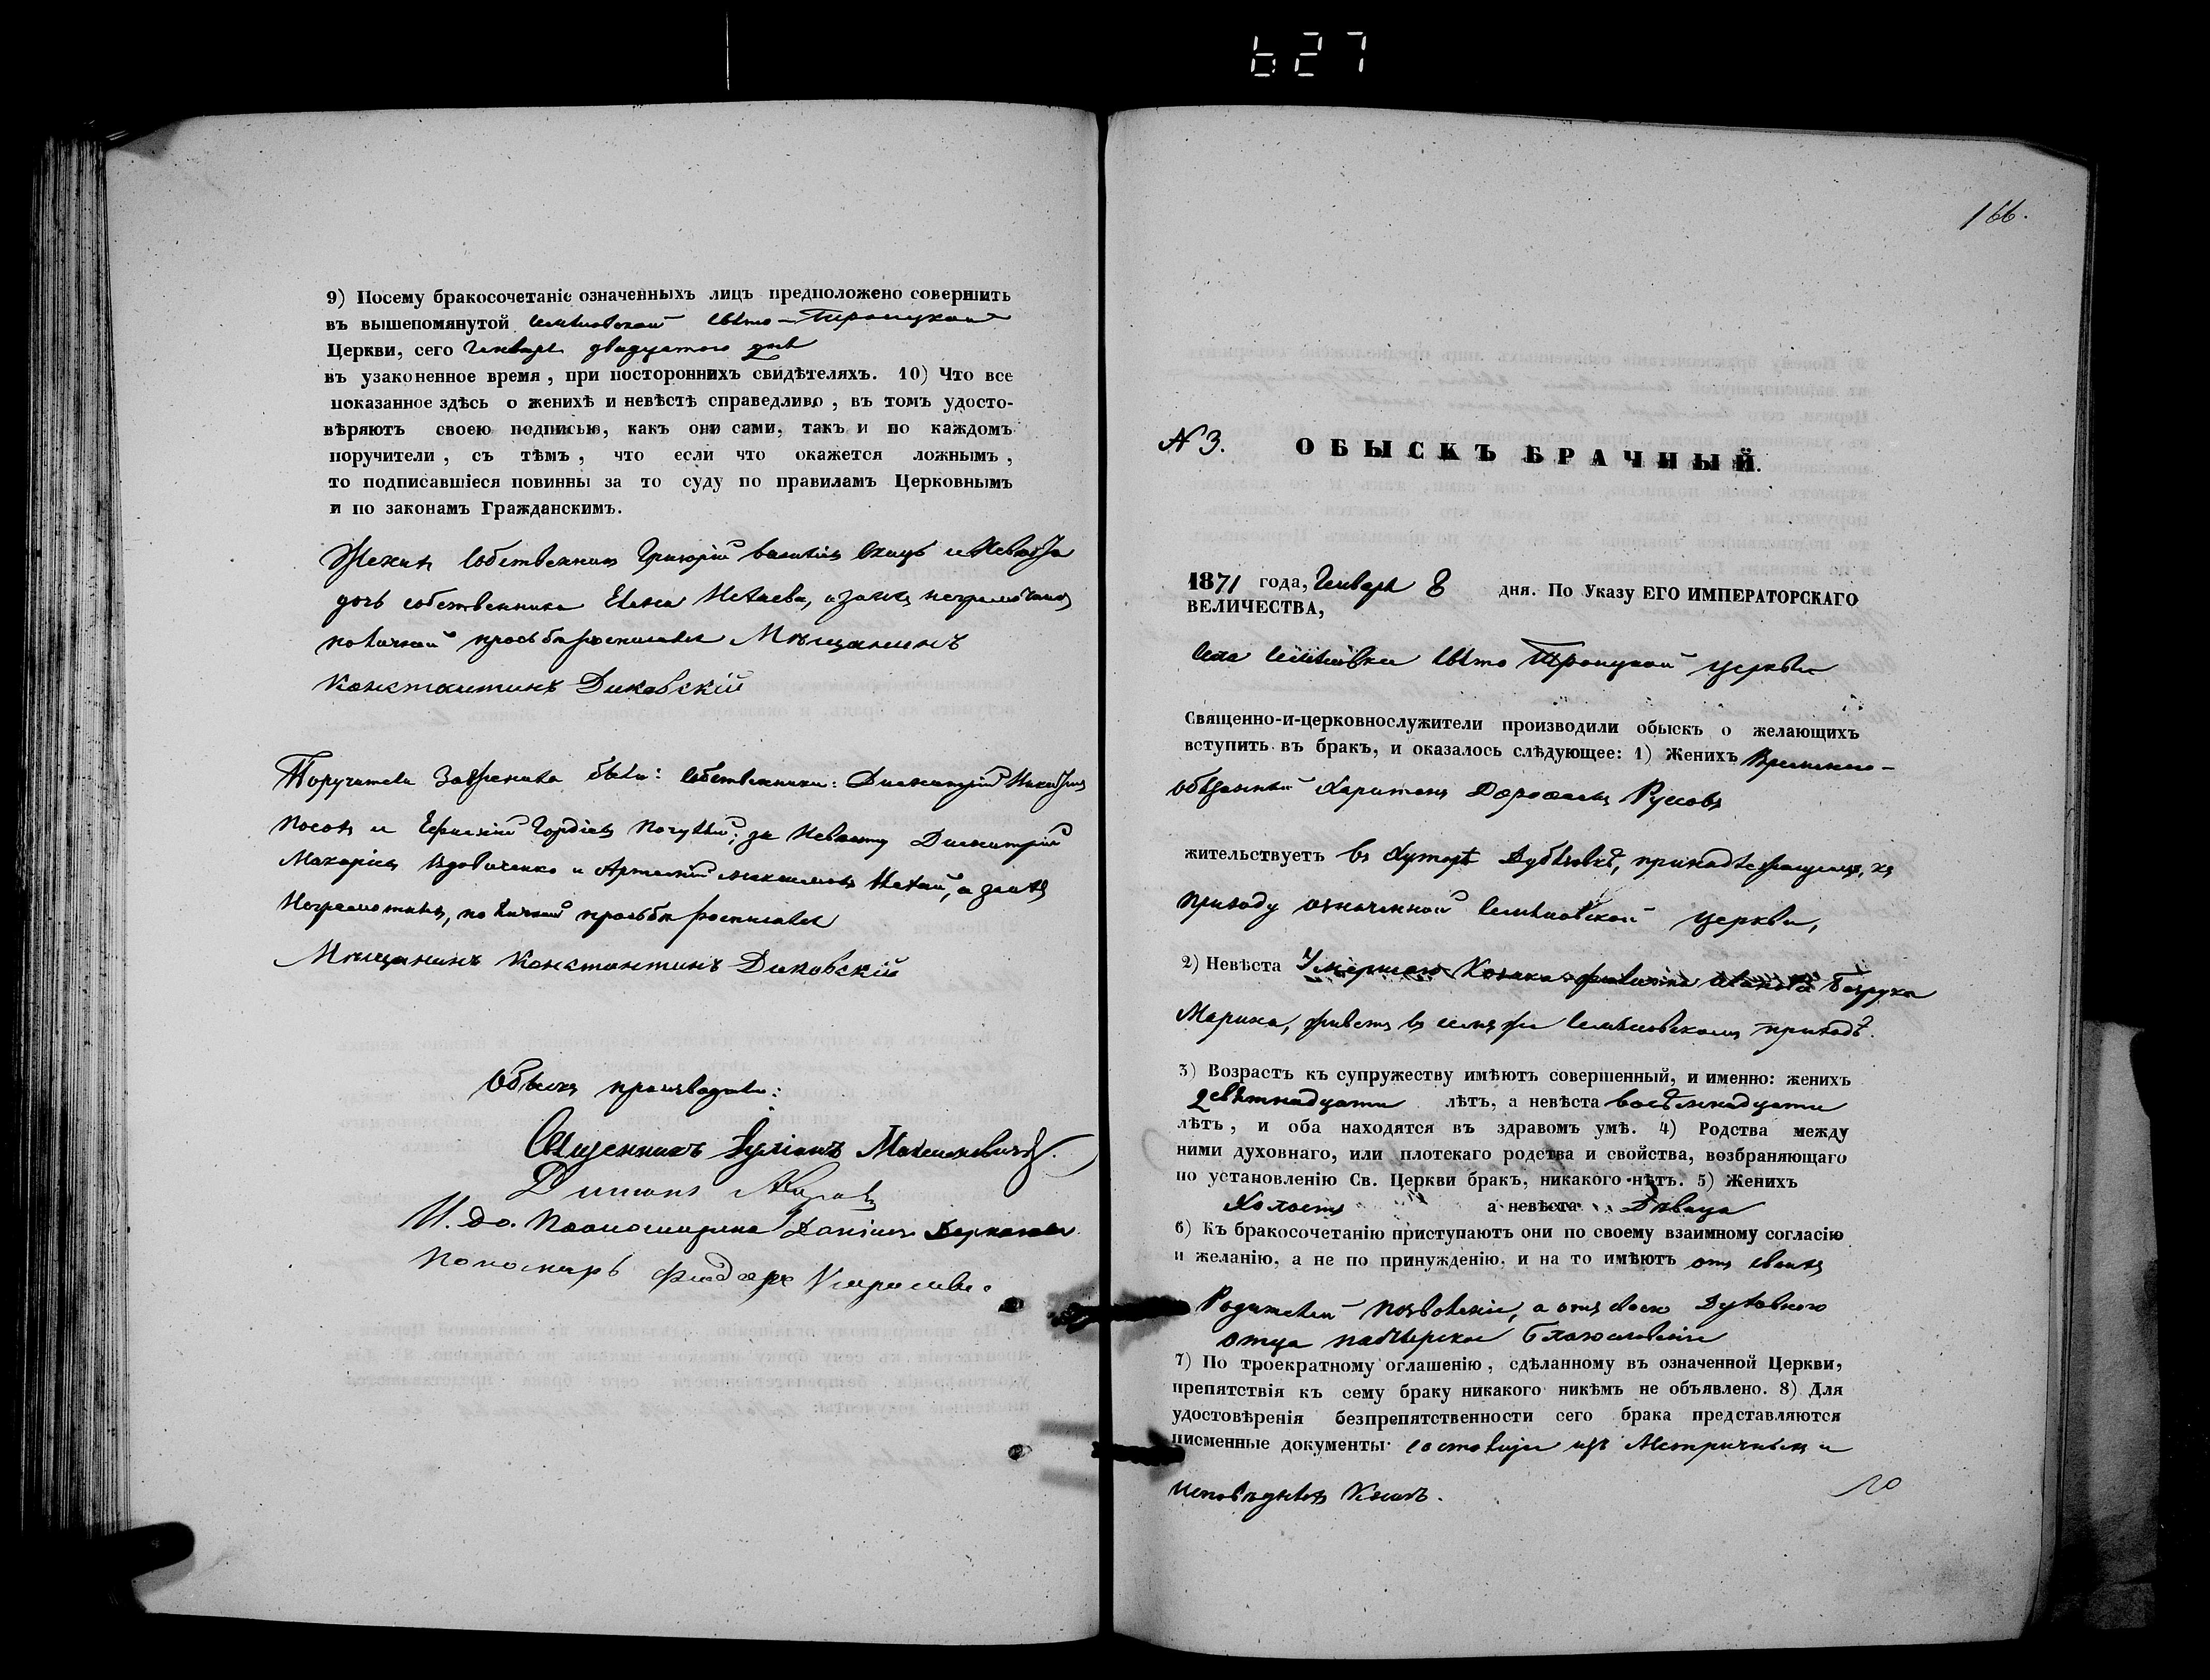 627
9) Посему бракосочетаніе означенныхъ лицъ предположено совершить
въ вышепомянутой Свѣто-Троицкой
Церкви, сего Генваря двадцятого дня
въ узаконенное время, при постороннихъ свидѣтеляхъ. 10) Что все
показанное здѣсь о женихѣ и невѣстѣ справедливо, въ томъ удосто-
вѣряютъ своею подписью, какъ они сами, такъ и по каждомъ
поручители, съ тѣмъ, что если что окажется ложнымъ,
то подписавшіеся повинны за то суду по правиламъ Церковнымъ
и по законамъ Гражданскимъ.
Женихъ собственникъ Григорій и Невѣста
дочь собственника Елена неграмотныхъ
по личной просьбѣ росписался Мѣщанинъ
Константинъ Диковскій
Поручители за Жениха были: собственники: Димитрій
и Гордіевъ за Невѣсту Димитрій
Макаріевъ Вдовиченко и Артемій а за нихъ
Неграмотныхъ, по личной просьбѣ росписался
Мѣщанинъ Константинъ Диковскій
Обыскъ производили:
Священникъ Іуліанъ Максимовичъ.
И. до. Псаломщика Даніилъ
Пономарь Феодоръ
166.
№ 3. ОБЫСКЪ БРАЧНЫЙ.
1871 года, Генваря 8 дня. По Указу ЕГО ИМПЕРАТОРСКАГО
ВЕЛИЧЕСТВА,
Села Свѣто Троицкой церкви
Священно-и-церковнослужители производили обыскъ о желающихъ
вступить въ бракъ, и оказалось слѣдующее: 1) Женихъ Временно-
обязанный Харитонъ Дорофеевъ Русовъ
жительствуетъ въ Хуторѣ принадлежащемъ, къ
приходу означенной церкви,
2) Невѣста Умершаго Козака Иванова Безрука
Марина, живетъ въ приходѣ.
3) Возрастъ къ супружеству имѣютъ совершенный, и именно: женихъ
девѣтнадцати лѣтъ, а невѣста восѣмнадцати
лѣтъ, и оба находятся въ здравомъ умѣ. 4) Родства между
ними духовнаго, или плотскаго родства и свойства, возбраняющаго
по установленію Св. Церкви бракъ, никакого нѣтъ. 5) Женихъ
Холостъ а невѣста Дѣвица
6) Къ бракосочетанію приступаютъ они по своему взаимному согласію
и желанію, а не по принужденію, и на то имѣютъ отъ своихъ
Родителей позволеніе, а отъ своего Духовного
отца пастырское благословеніе
7) По троекратному оглашенію, сдѣланному въ означенной Церкви,
препятствія къ сему браку никакого никѣмъ не объявлено. 8) Для
удостовѣренія безпрепятственности сего брака представляются
писменные документы: состоящіе изъ Метричныхъ и
исповѣдныхъ Книгъ.